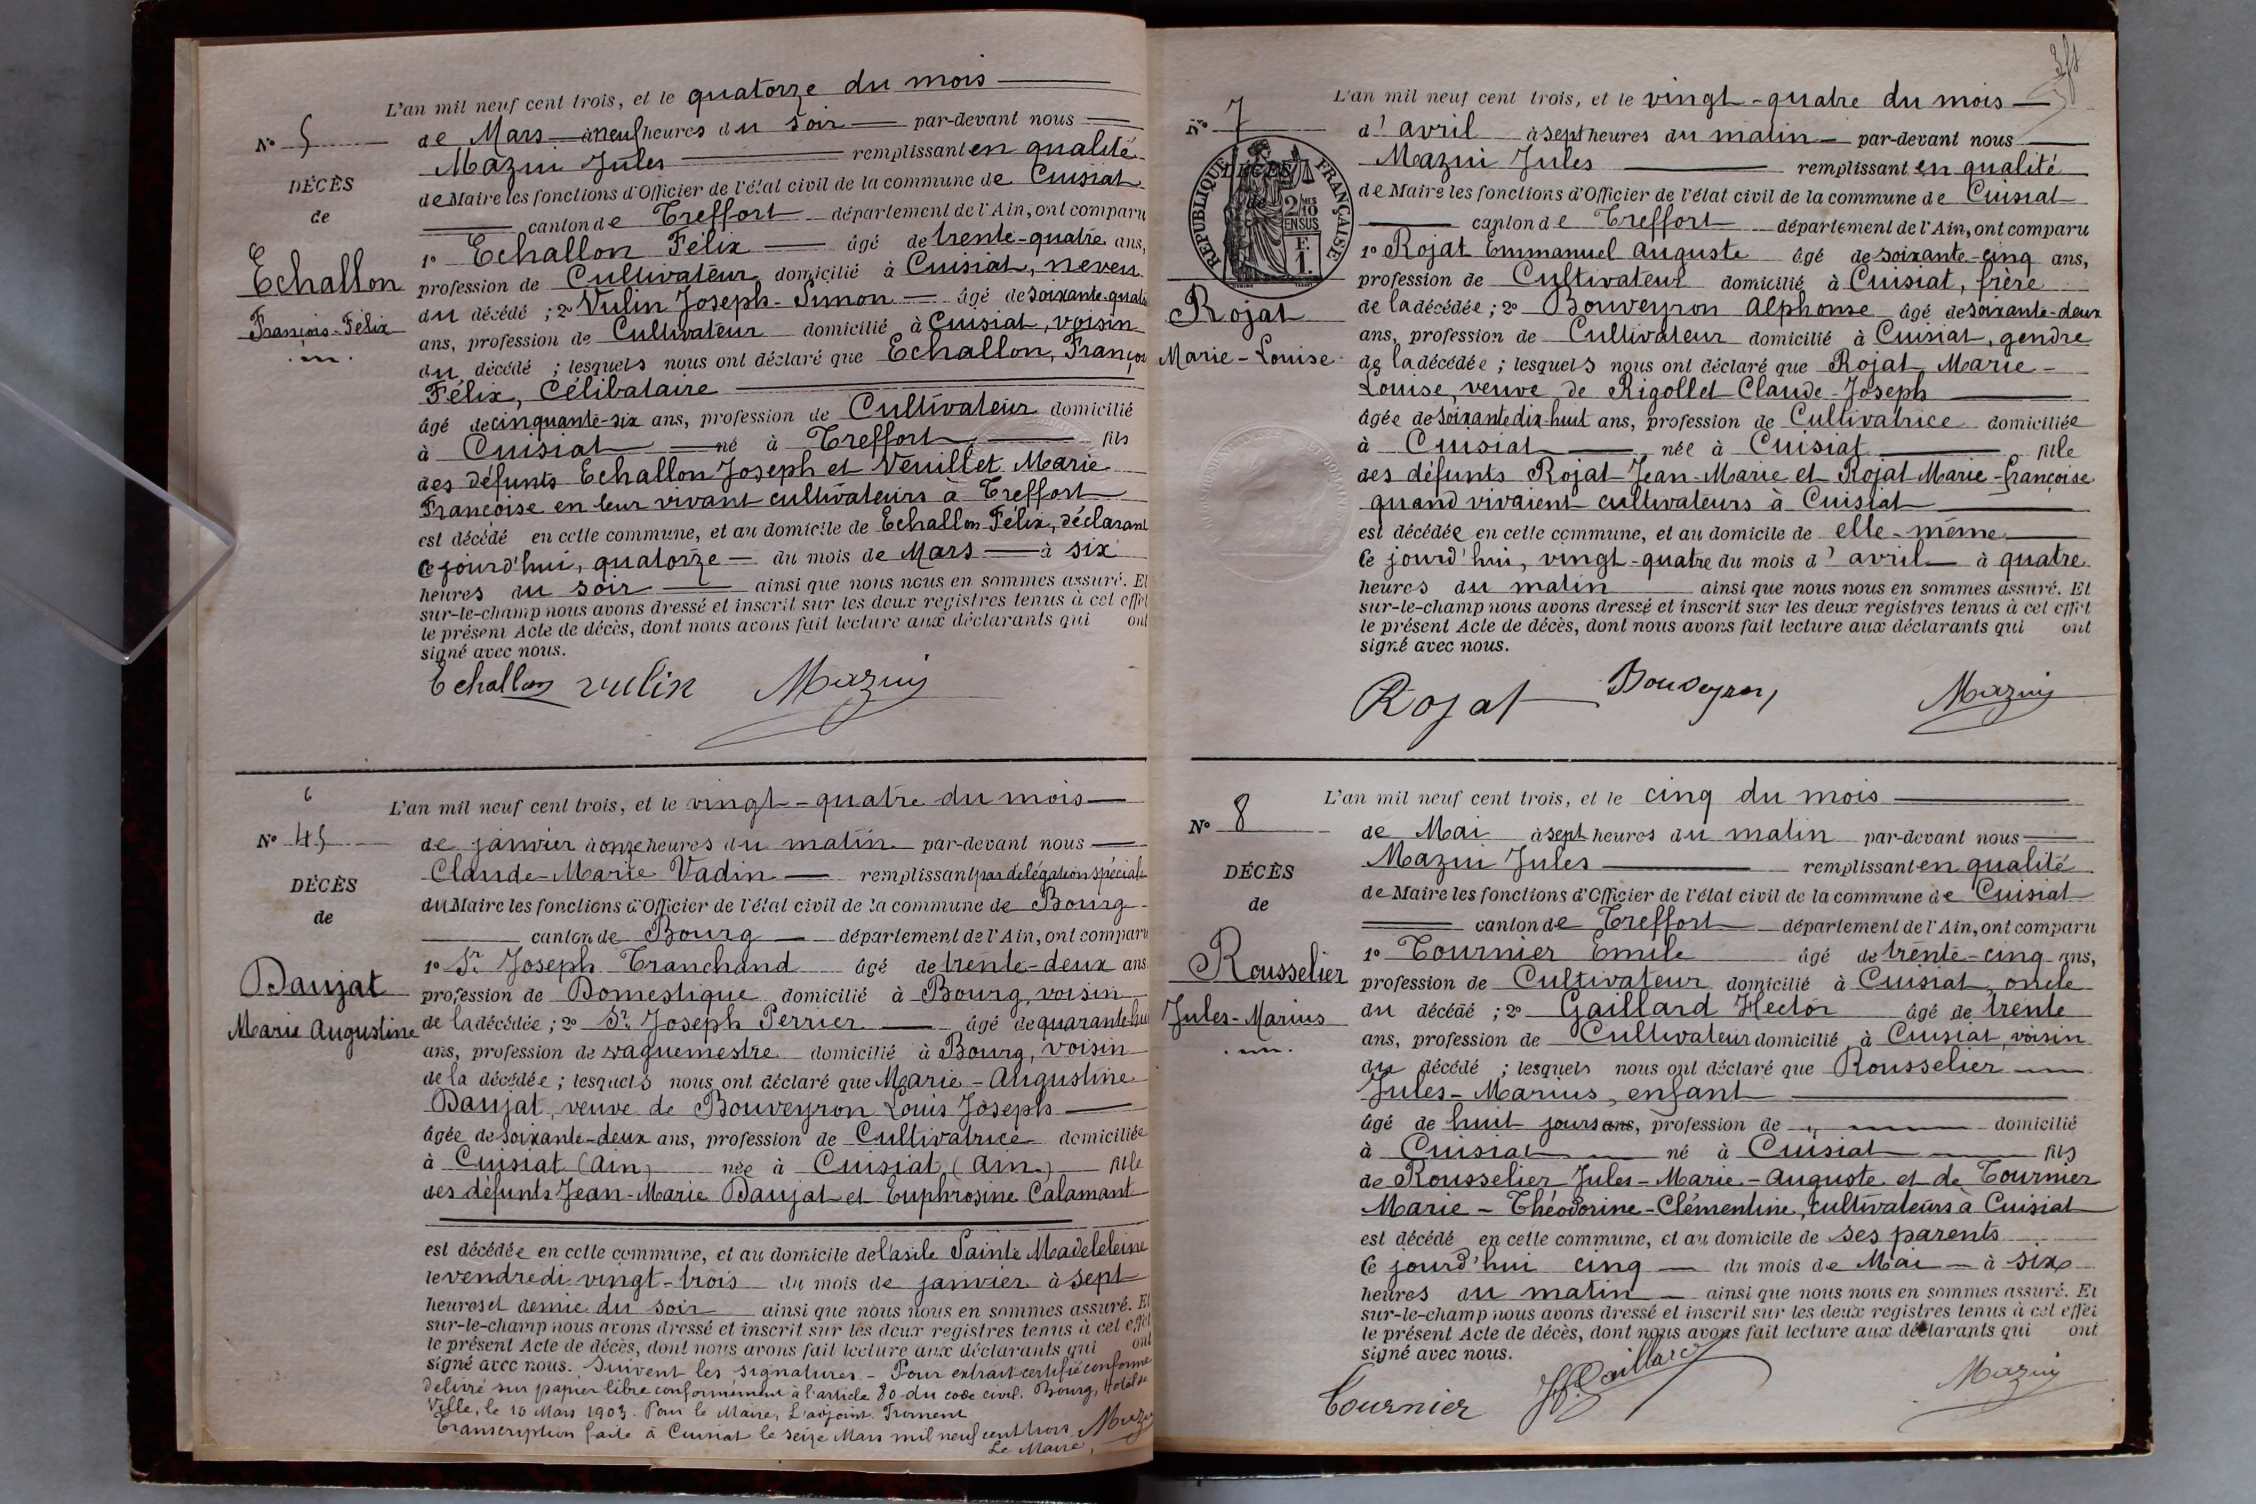 L'an mil neuf cent trois, et le quatorze du mois
N° 5
de Mars à neuf heures du soir par-devant nous
Mazui Jules remplissant en qualité
DÉCÈS
de Maire les fonctions d'Officier de l'état civil de la commune de Cuisiat
de
canton de Treffort département de l'Ain, ont comparu
Echallon
1° Echallon Félix âgé de trente-quatre ans,
profession de Cultivateur domicilié à Cuisiat, neveu
François-Félix
du décédé ; 2° Vulin Joseph-Simon âgé de soixante-quatre
ans, profession de Cultivateur domicilié à Cuisiat, voisin
du décédé ; lesquels nous ont déclaré que Echallon, François
Félix, Célibataire
âgé de cinquante-six ans, profession de Cultivateur domicilié
à Cuisiat né à Treffort fils
des défunts Echallon Joseph et Veuillet Marie
Françoise en leur vivant cultivateurs à Treffort
est décédé en cette commune, et au domicile de Echallon Félix, déclarant
Ce jourd'hui, quatorze du mois de Mars à six
heures du soir ainsi que nous nous en sommes assuré. Et
sur-le-champ nous avons dressé et inscrit sur les deux registres tenus à cet effet
le présent Acte de décès, dont nous avons fait lecture aux déclarants qui ont
signé avec nous.
Echallon vulin Mazui
6
L'an mil neuf cent trois, et le vingt-quatre du mois
N° 45
de janvier à onze heures du matin par-devant nous
Claude-Marie Vadin remplissant par délégation spéciale
DÉCÈS
du Maire les fonctions d'Officier de l'état civil de la commune de Bourg
de
canton de Bourg département de l'Ain, ont comparu
1° Sr Joseph Tranchand âgé de trente-deux ans
Daujat
profession de Domestique domicilié à Bourg, voisin
Marie Augustine
de la décédée ; 2° Sr Joseph Perrier âgé de quarante-huit
ans, profession de vaguemestre domicilié à Bourg, voisin
de la décédée ; lesquels nous ont déclaré que Marie-Augustine
Daujat, veuve de Bouveyron Louis Joseph
âgée de soixante-deux ans, profession de Cultivatrice domiciliée
à Cuisiat (Ain) née à Cuisiat (Ain) fille
des défunts Jean-Marie Daujat et Euphrosine Calamant
est décédée en cette commune, et au domicile de l'asile Sainte Madeleleine
le vendredi vingt-trois du mois de janvier à sept
heures et demie du soir ainsi que nous nous en sommes assuré. Et
sur-le-champ nous avons dressé et inscrit sur les deux registres tenus à cet effet
le présent Acte de décès, dont nous avons fait lecture aux déclarants qui ont
signé avec nous. Suivent les signatures - Pour extrait certifié conforme
délivré sur papier libre conformément à l'article 80 du code civil. Bourg, Hôtel de
Ville, le 10 Mars 1903. Pour le Maire, L'adjoint. Froment
Transcription faite à Cuisiat le seize Mars mil neuf cent trois.
Le Maire, Mazui
L'an mil neuf cent trois, et le vingt-quatre du mois
N° 7
d'avril à sept heures du matin par-devant nous
Mazui Jules remplissant en qualité
DÉCÈS
RÉPUBLIQUE FRANÇAISE
2/10 EN SUS
F. 1.
de Maire les fonctions d'Officier de l'état civil de la commune de Cuisiat
canton de Treffort département de l'Ain, ont comparu
1° Rojat Emmanuel Auguste âgé de soixante-cinq ans,
profession de Cultivateur domicilié à Cuisiat, frère
Rojat
de la décédée ; 2° Bouveyron Alphonse âgé de soixante-deux
ans, profession de Cultivateur domicilié à Cuisiat, gendre
Marie-Louise
de la décédée ; lesquels nous ont déclaré que Rojat Marie-
Louise, veuve de Rigollet Claude-Joseph
âgée de soixante dix-huit ans, profession de Cultivatrice domiciliée
à Cuisiat née à Cuisiat fille
des défunts Rojat Jean-Marie et Rojat Marie-françoise
quand vivaient cultivateurs à Cuisiat
est décédée en cette commune, et au domicile de elle-même
Ce jourd'hui, vingt-quatre du mois d'avril à quatre
heures du matin ainsi que nous nous en sommes assuré. Et
sur-le-champ nous avons dressé et inscrit sur les deux registres tenus à cet effet
le présent Acte de décès, dont nous avons fait lecture aux déclarants qui ont
signé avec nous.
Rojat Bouveyron Mazui
L'an mil neuf cent trois, et le cinq du mois
N° 8
de Mai à sept heures du matin par-devant nous
Mazui Jules remplissant en qualité
DÉCÈS
de Maire les fonctions d'Officier de l'état civil de la commune de Cuisiat
de
canton de Treffort département de l'Ain, ont comparu
1° Tournier Emile âgé de trente-cinq ans,
Rousselier
profession de Cultivateur domicilié à Cuisiat, oncle
Jules-Marius
du décédé ; 2° Gaillard Hector âgé de trente
ans, profession de Cultivateur domicilié à Cuisiat, voisin
du décédé ; lesquels nous ont déclaré que Rousselier
Jules-Marius, enfant
âgé de huit jours ans, profession de domicilié
à Cuisiat né à Cuisiat fils
de Rousselier Jules-Marie-Auguste et de Tournier
Marie-Théodorine-Clémentine, cultivateurs à Cuisiat
est décédé en cette commune, et au domicile de ses parents
Ce jourd'hui cinq du mois de Mai à six
heures du matin ainsi que nous nous en sommes assuré. Et
sur-le-champ nous avons dressé et inscrit sur les deux registres tenus à cet effet
le présent Acte de décès, dont nous avons fait lecture aux déclarants qui ont
signé avec nous.
Tournier H. Gaillard Mazui